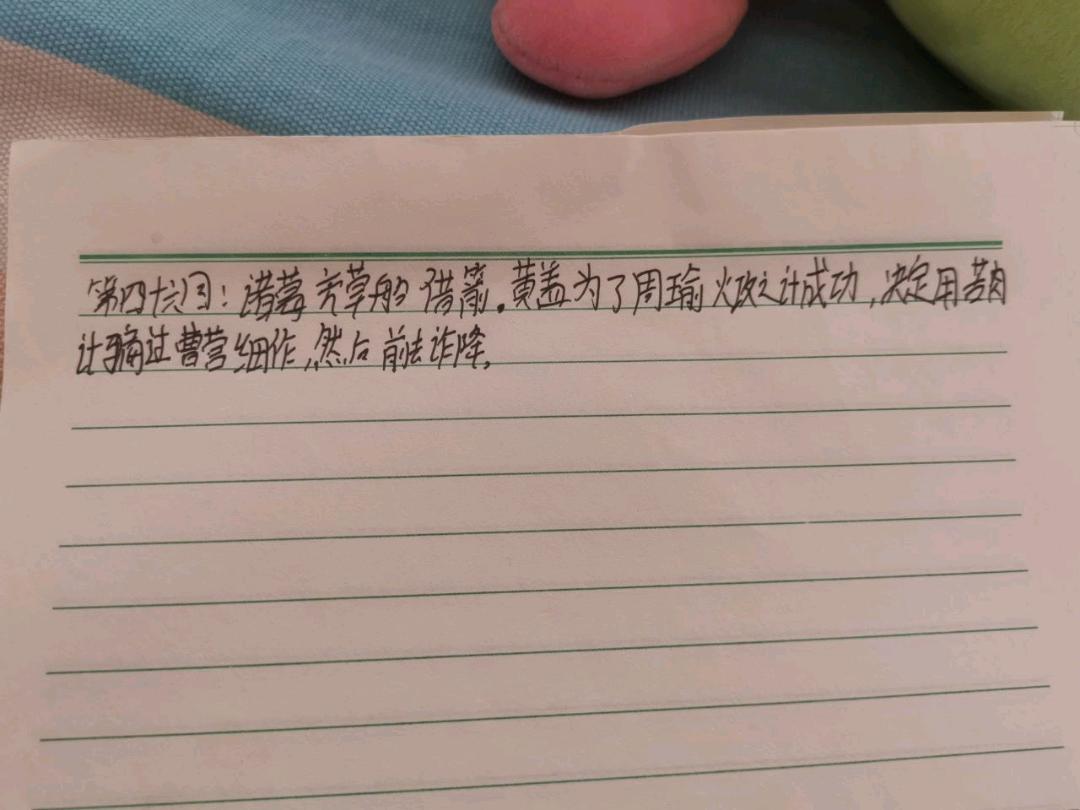 第四十六回：诸葛亮草船借箭。黄盖为了周瑜火攻之计成功，决定用苦肉
计骗过曹营细作，然后前去诈降。